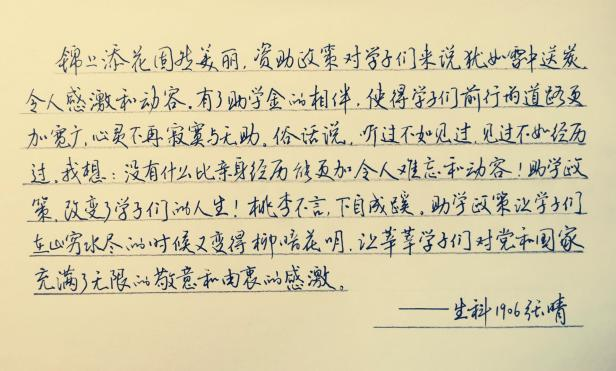 锦上添花固然美丽，资助政策对学子们来说犹如雪中送炭，
令人感激和动容。有了助学金的相伴，使得学子们前行的道路更
加宽广，心灵不再寂寞与无助。俗话说，听过不如见过，见过不如经历
过，我想：没有什么比亲身经历能更加令人难忘和动容！助学政
策，改变了学子们的人生！桃李不言，下自成蹊。助学政策让学子们
在山穷水尽的时候又变得柳暗花明，让莘莘学子们对党和国家
充满了无限的敬意和由衷的感激。
——生科1906张晴